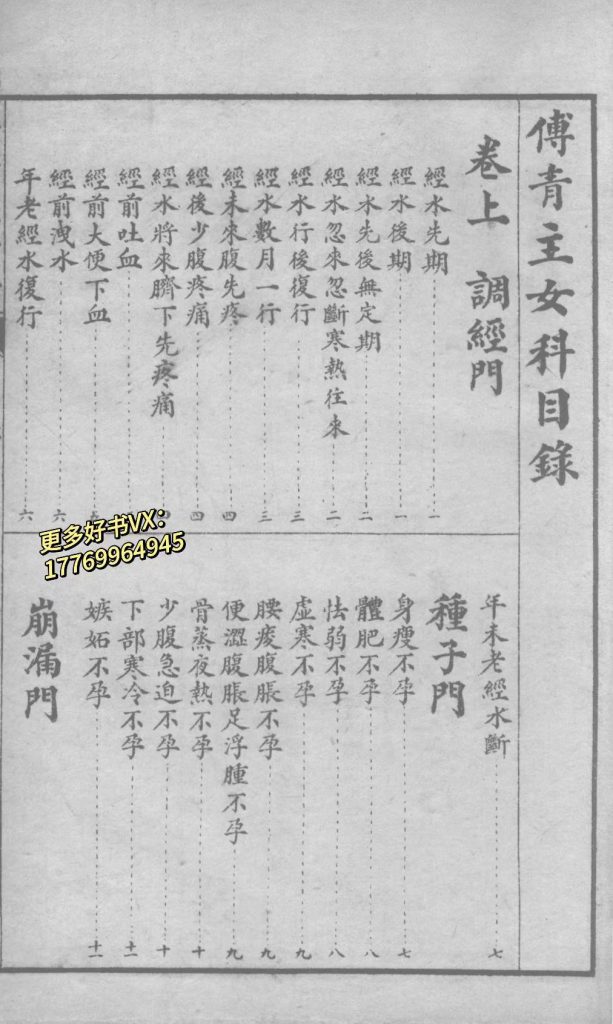 傅青主女科目錄
卷上 調經門
經水先期 一
經水後期 一
經水先後無定期 二
經水忽來忽斷寒熱往來 二
經水行後復行 三
經水數月一行 三
經未來腹先疼 四
經後少腹疼痛 四
經水將來臍下先疼痛
經前吐血
經前大便下血
經前洩水 六
年老經水復行 六
年未老經水斷 七
種子門
身瘦不孕 七
體肥不孕 八
怯弱不孕 八
虛寒不孕 九
腰痠腹脹不孕 九
便澀腹脹足浮腫不孕 九
骨蒸夜熱不孕 十
少腹急迫不孕 十
下部寒冷不孕 十一
嫉妬不孕 十一
崩漏門
更多好书VX：
17769964945